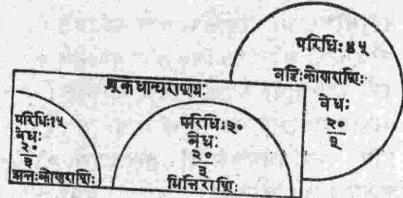 परिधिः ४५
बहिःकोणराशिः
वेधः
२०
३
शूकधान्यराशयः
परिधिः १५
वेधः
२०
३
अन्तःकोणराशिः
परिधिः ३०
वेधः
२०
३
भित्तिराशिः